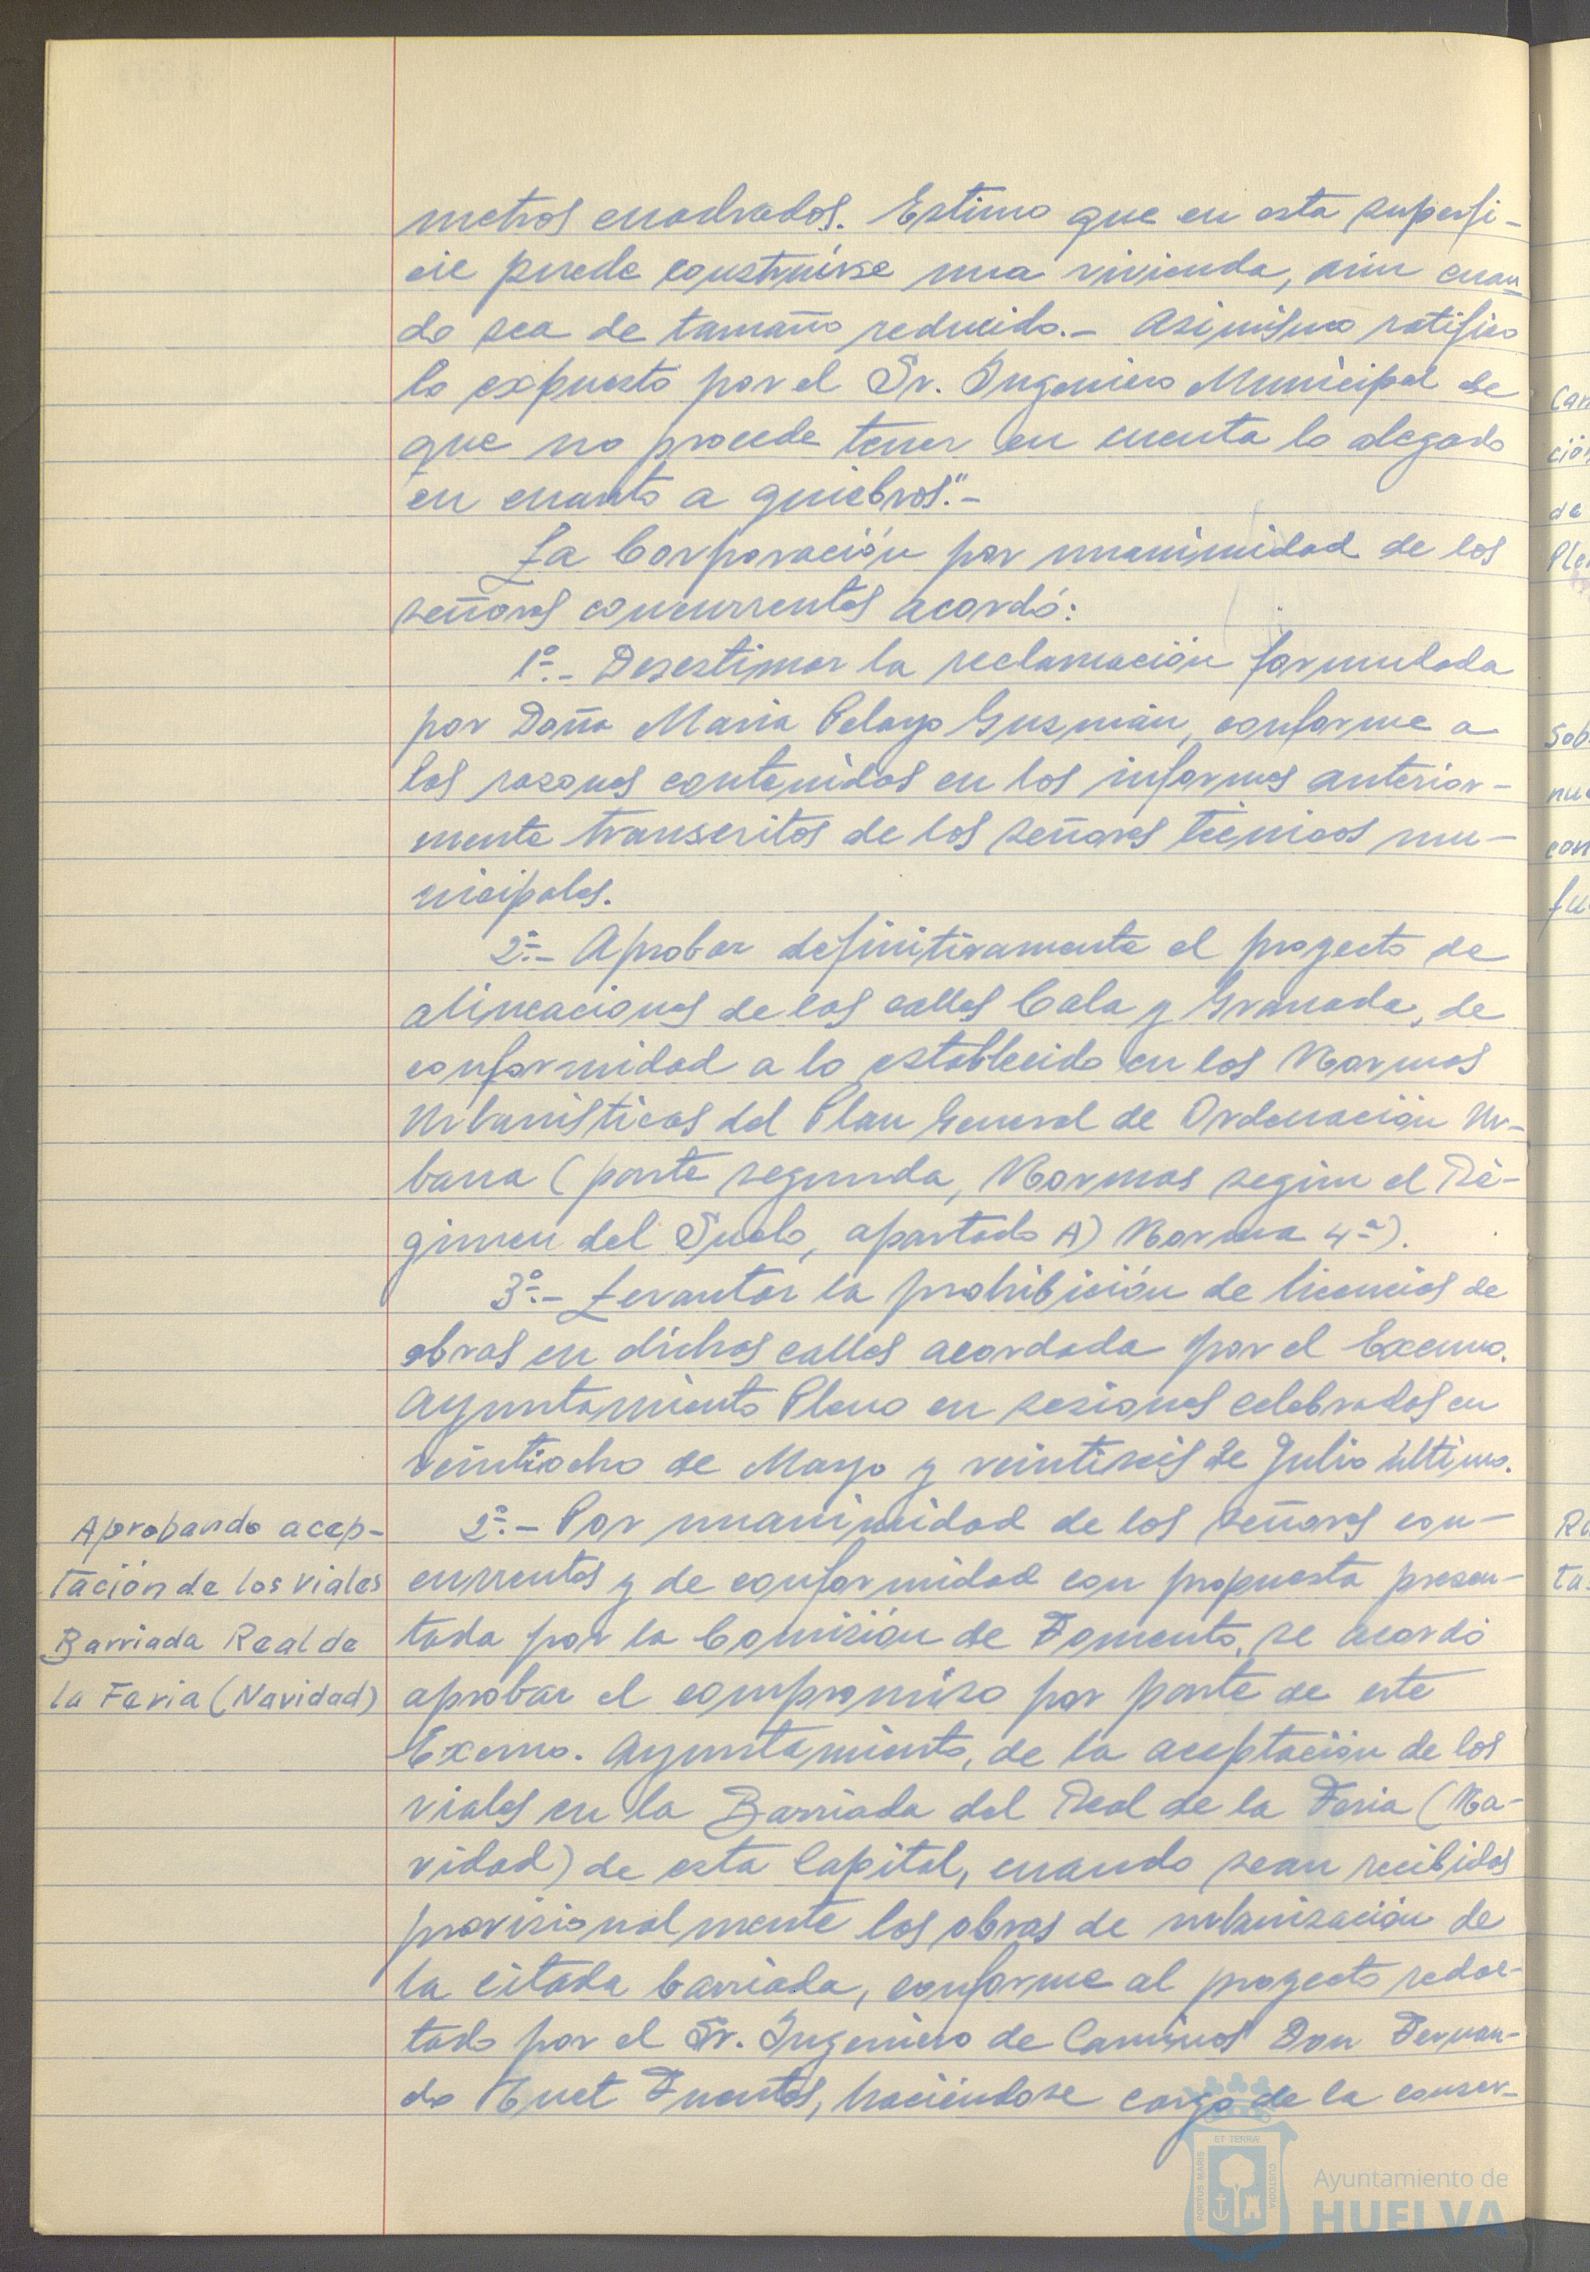 metros cuadrados. Estimo que en esta superfi-
cie puede construirse una vivienda, aún cuan-
do sea de tamaño reducido.- Asimismo ratifico
lo expuesto por el Sr. Ingeniero Municipal de
que no procede tener en cuenta lo alegado
en cuanto a quiebros".-
La Corporación por unanimidad de los
señores concurrentes acordó:
1º.- Desestimar la reclamación formulada
por Doña Maria Pelayo Guzmán, conforme a
las razones contenidas en los informes anterior-
mente transcritos de los señores técnicos mu-
nicipales.
2º.- Aprobar definitivamente el proyecto de
alineaciones de las calles Cala y Granada, de
conformidad a lo establecido en las Normas
Urbanísticas del Plan General de Ordenación Ur-
bana (parte segunda, Normas según el Ré-
gimen del Suelo, apartado A) Norma 4ª).
3º.- Levantar la prohibición de licencias de
obras en dichas calles acordada por el Excmo.
Ayuntamiento Pleno en sesiones celebradas en
veintiocho de Mayo y veintiseis de Julio último.
Aprobando acep-
tación de los viales
Barriada Real de
la Feria (Navidad)
2º.- Por unanimidad de los señores con-
currentes y de conformidad con propuesta presen-
tada por la Comisión de Fomento, se acordó
aprobar el compromiso por parte de este
Excmo. Ayuntamiento, de la aceptación de los
viales en la Barriada del Real de la Feria (Na-
vidad) de esta Capital, cuando sean recibidas
provisionalmente las obras de urbanización de
la citada barriada, conforme al proyecto redac-
tado por el Sr. Ingeniero de Caminos Don Fernan-
do Fuentes, haciéndose cargo de la conser-
Can
ción
de
Ple
Sob
nu
con
fu
Ru
ta
PORTUS MARIS
ET TERRÆ
CUSTODIA
Ayuntamiento de
HUELVA